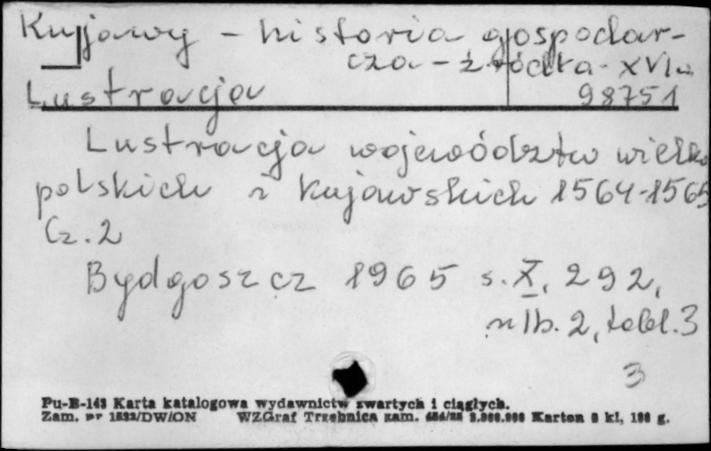 Kujawy - historia gospodar-
cza - źródła - XVI w.
Lustracja 98751
Lustracja województw wielko
polskich i kujawskich 1564-1565
Cz. 2
Bydgoszcz 1965 s. X, 292,
nlb. 2, tabl. 3
3
Pu-B-143 Karta katalogowa wydawnictw zwartych i ciągłych.
Zam. nr /DW/ON WZGraf Trzebnica zam. Karton kl, g.